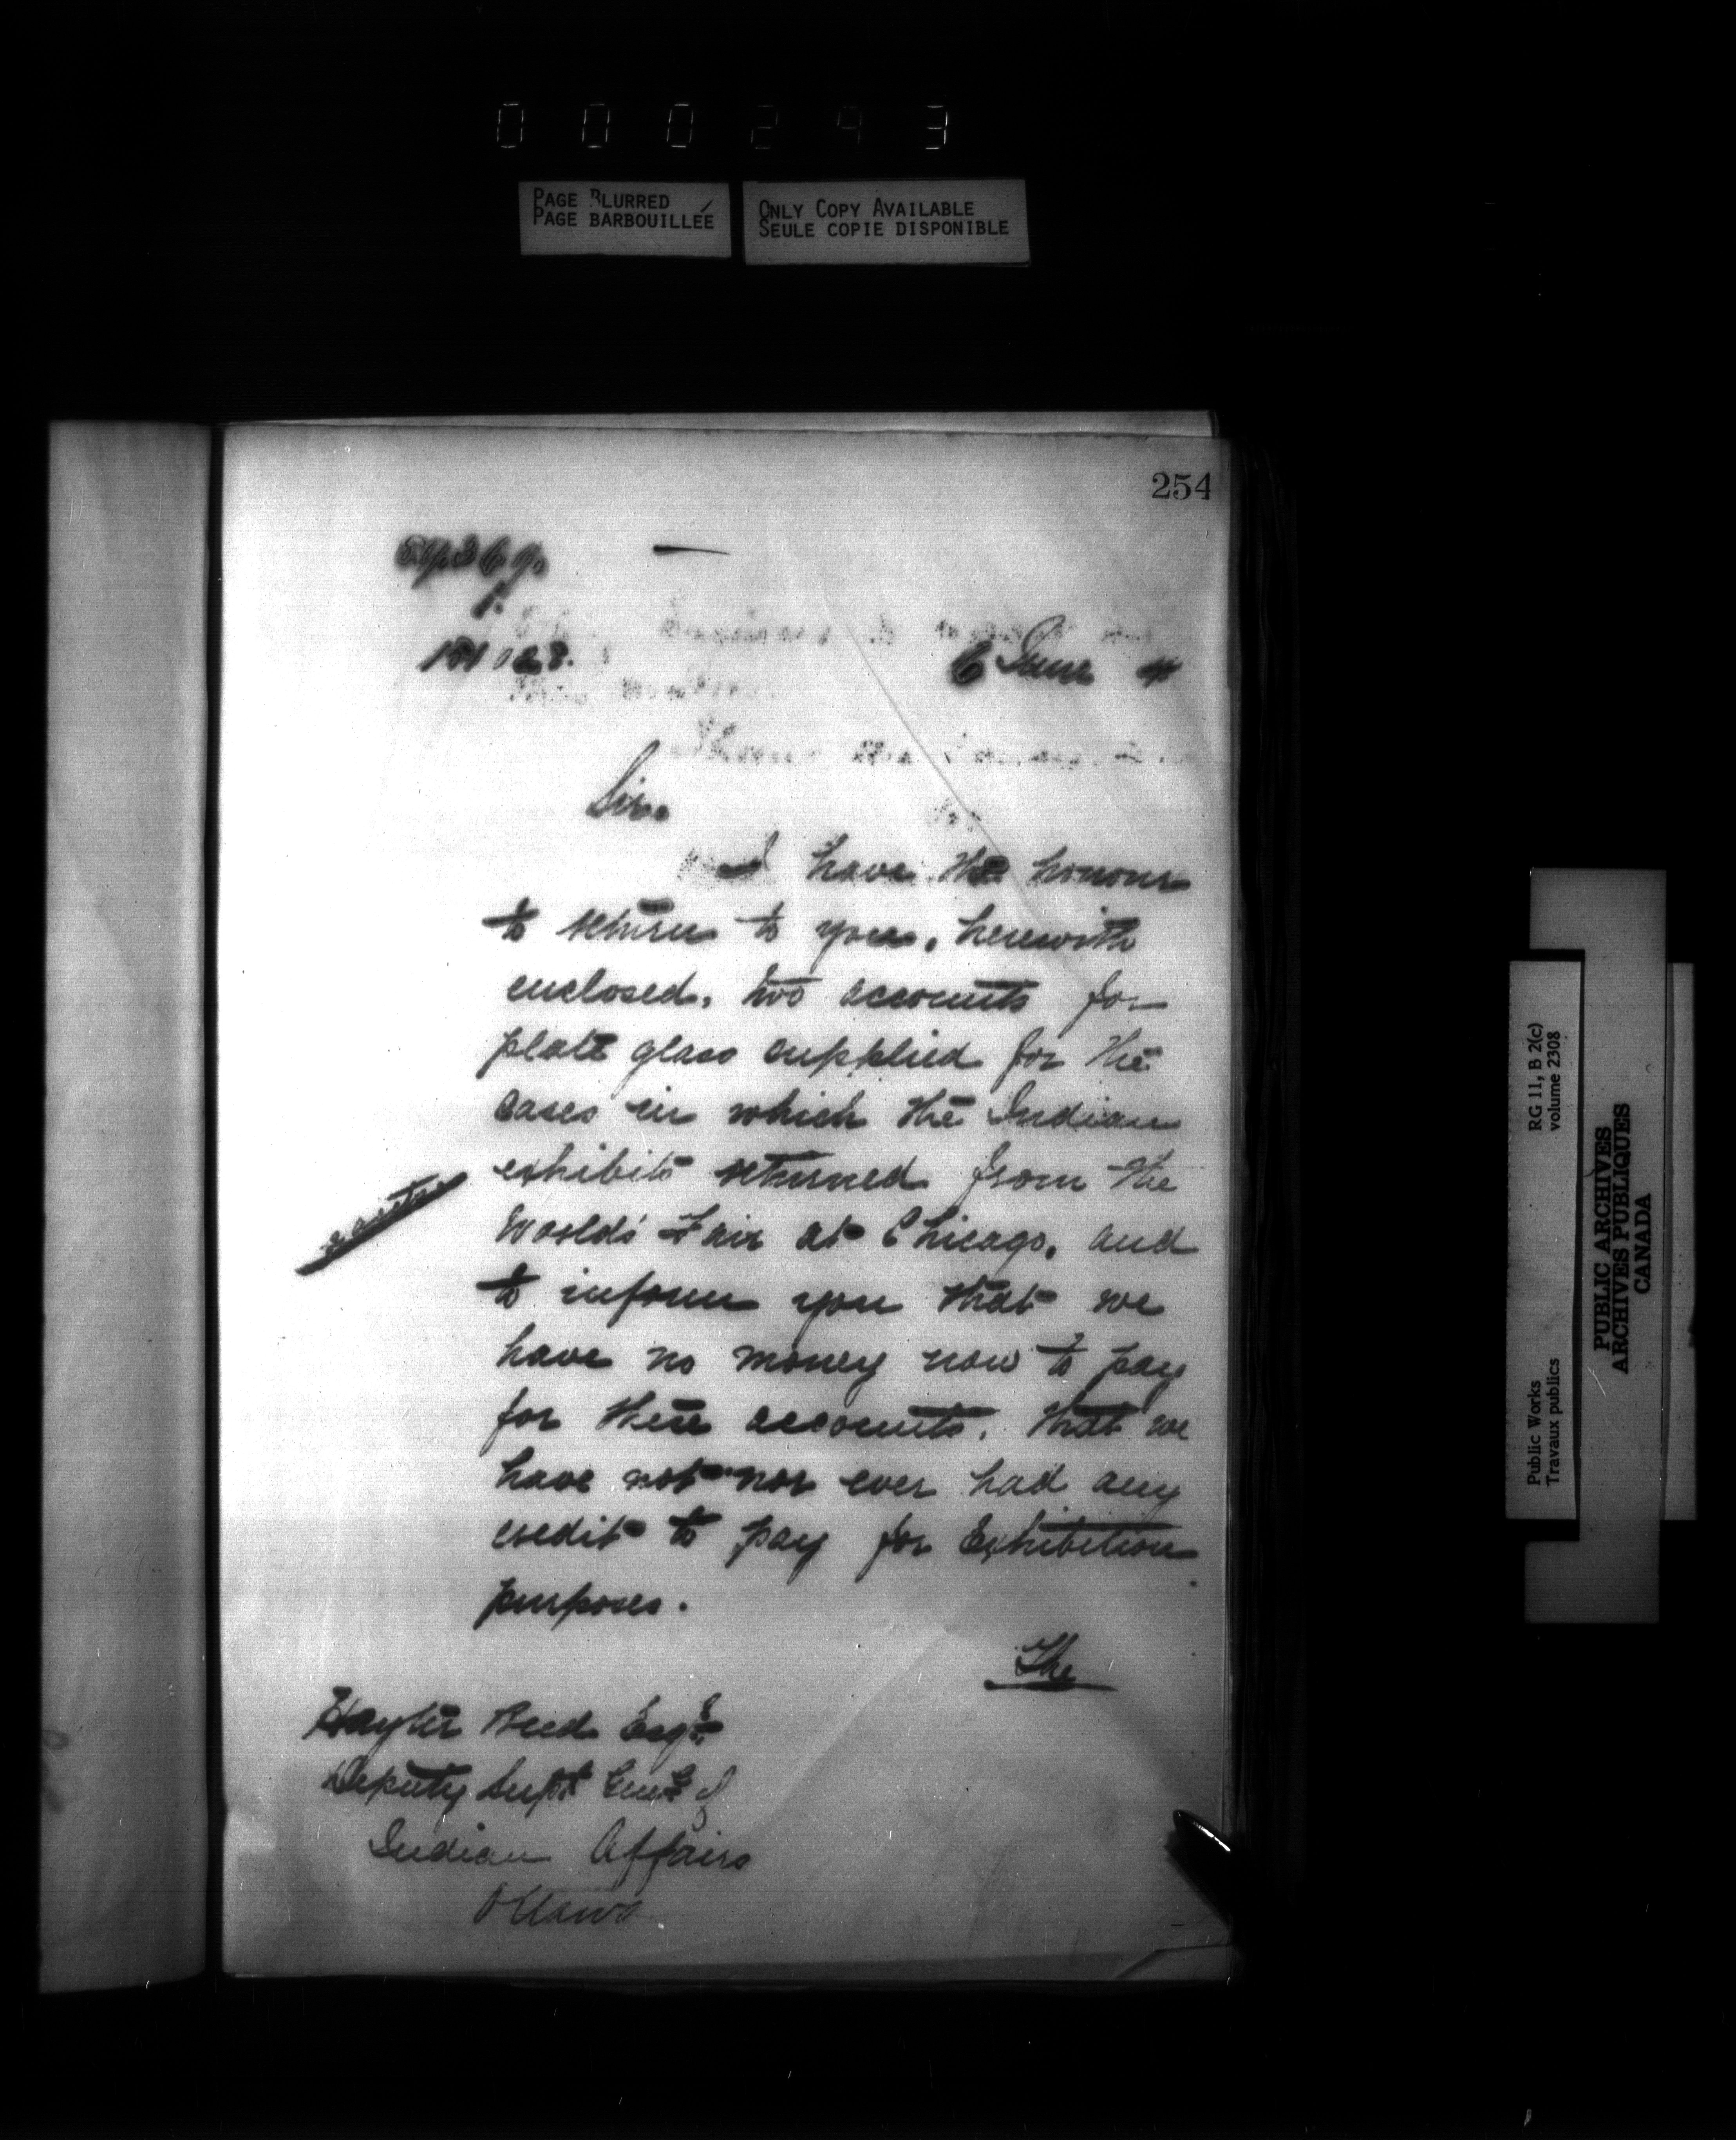 000293
PAGE BLURRED
PAGE BARBOUILLÉE
ONLY COPY AVAILABLE
SEULE COPIE DISPONIBLE
254
6 June
Sir.
I have the honour
to return to you, herewith
enclosed, two accounts for
plate glass supplied for the
cases in which the Indian
exhibits returned from the
World's Fair at Chicago, and
to inform you that we
have no money now to pay
for these accounts, that we
have not nor ever had any
credit to pay for Exhibition
purposes.
The
Hayter Reed Esqre
Deputy Supt Genl of
Indian Affairs
Ottawa
Public Works
Travaux publics
RG 11, B 2(c)
volume 2308
PUBLIC ARCHIVES
ARCHIVES PUBLIQUES
CANADA